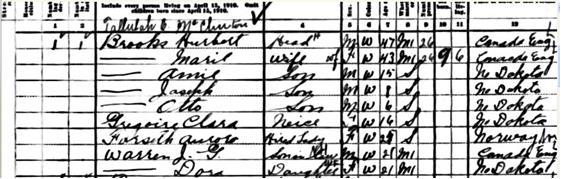 Include every person living on April 15, 1910. Omit
children born since April 15, 1910.
1 2 3 4 5 6 7 8 9 10 11 12
Tallulah E. McClinton
1 1 Brooks Hurbert Head M W 47 M1 26 Canada Eng
— Maril Wife F W 43 M1 26 9 6 Canada Eng
— Amie Son M W 15 S No Dakota
— Joseph Son M W 8 S No Dakota
— Otto Son M W 6 S No Dakota
Gregoire Clara Neice F W 16 S No Dakota
Forseth Hired Lady F W S Norway
Warren J. G. Son in Law M W 28 M1 Canada Eng
— Dora Daughter F W 21 M1 No Dakota